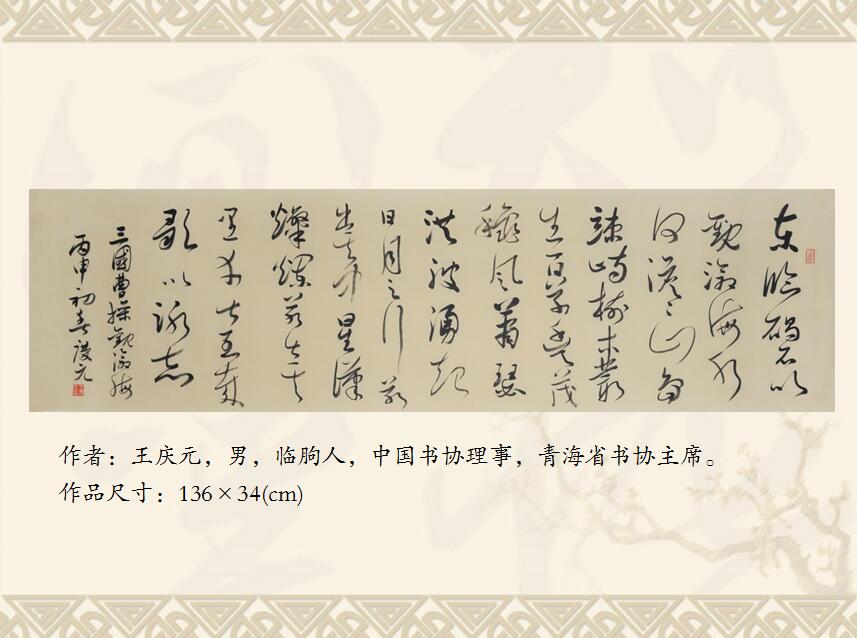 东臨碣石以
觀滄海水
何澹〻山島
竦峙樹木叢
生百草豐茂
穐風蕭瑟
洪波湧起
日月之行若
出其中星漢
燦爛若出其
里幸甚至哉
歌以詠志
三國曹操觀滄海
丙申初春慶元
作者：王庆元，男，临朐人，中国书协理事，青海省书协主席。
作品尺寸：136×34(cm)